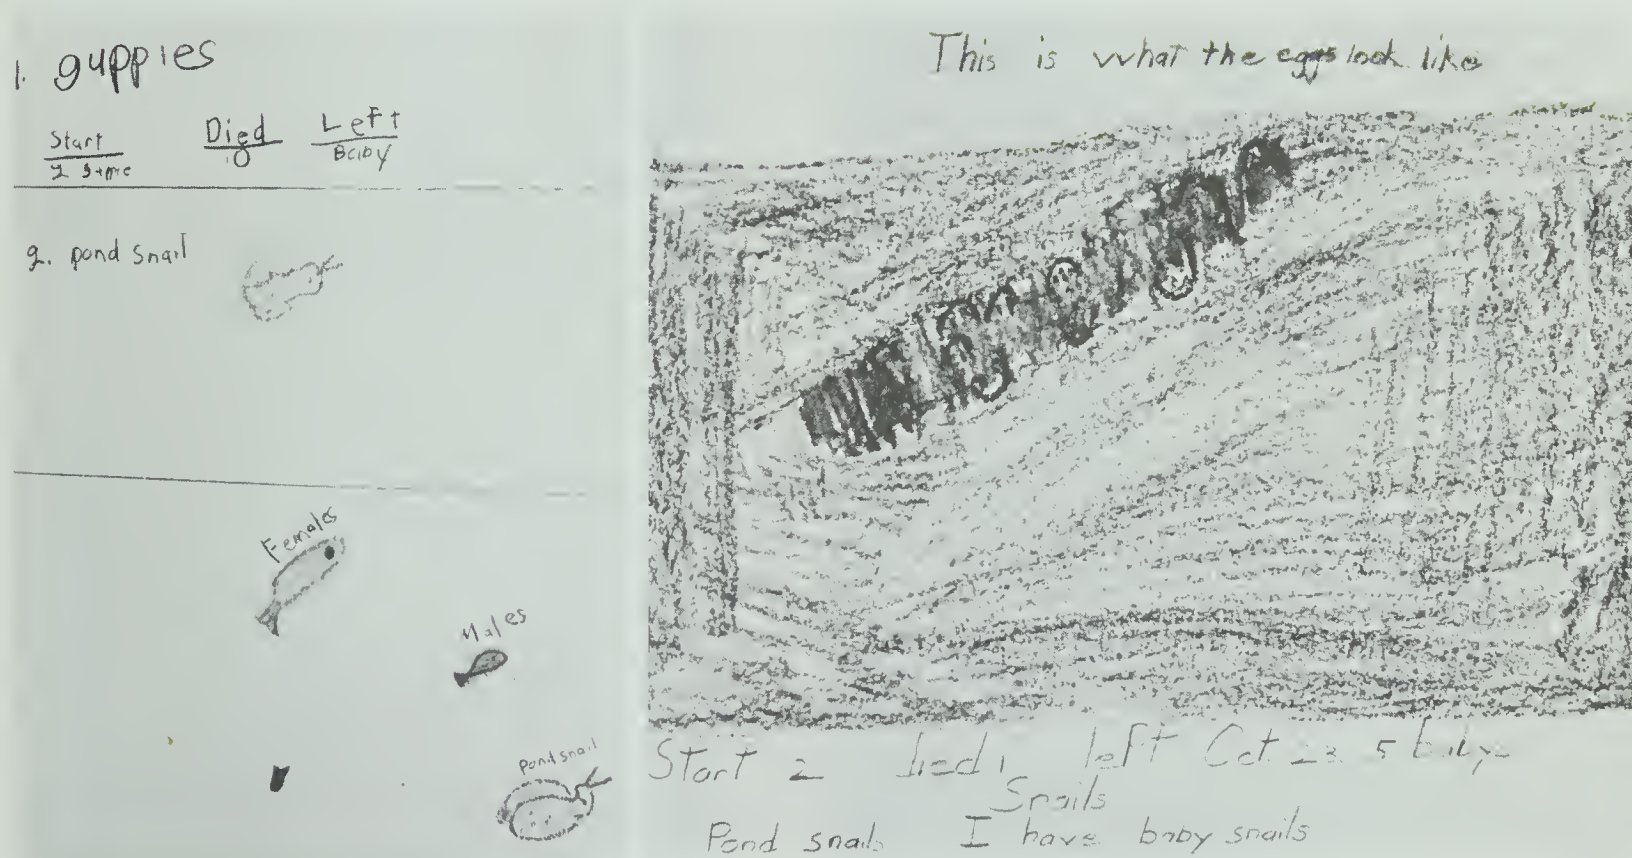 1. guppies
Start Died Left
2 0 Baby
2. pond snail
Females
Males
pond snail
This is what the eggs look like
Start 2 died 1 left Oct. 23. 5 baby
Snails
Pond snails I have baby snails